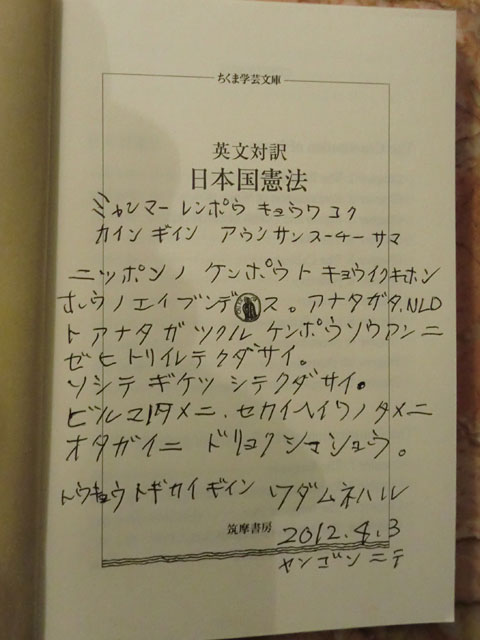 ちくま学芸文庫
英文対訳
日本国憲法
ミャンマー レンポウ キョウワコク
カイン ギイン アウンサンスーチー サマ
ニッポンノ ケンポウト キョウイクキホン
ホウノエイブンデス。アナタガタ、NLD
ト アナタ ガ ツクル ケンポウソウアンニ
ゼヒ トリイレテクダサイ。
ソシテ ギケツ シテクダサイ。
ビルマノタメニ、セカイヘイワノタメニ
オタガイニ ドリョクシマショウ。
トウキョウトギカイギイン ワダムネハル
筑摩書房 2012.4.3
ヤンゴンニテ